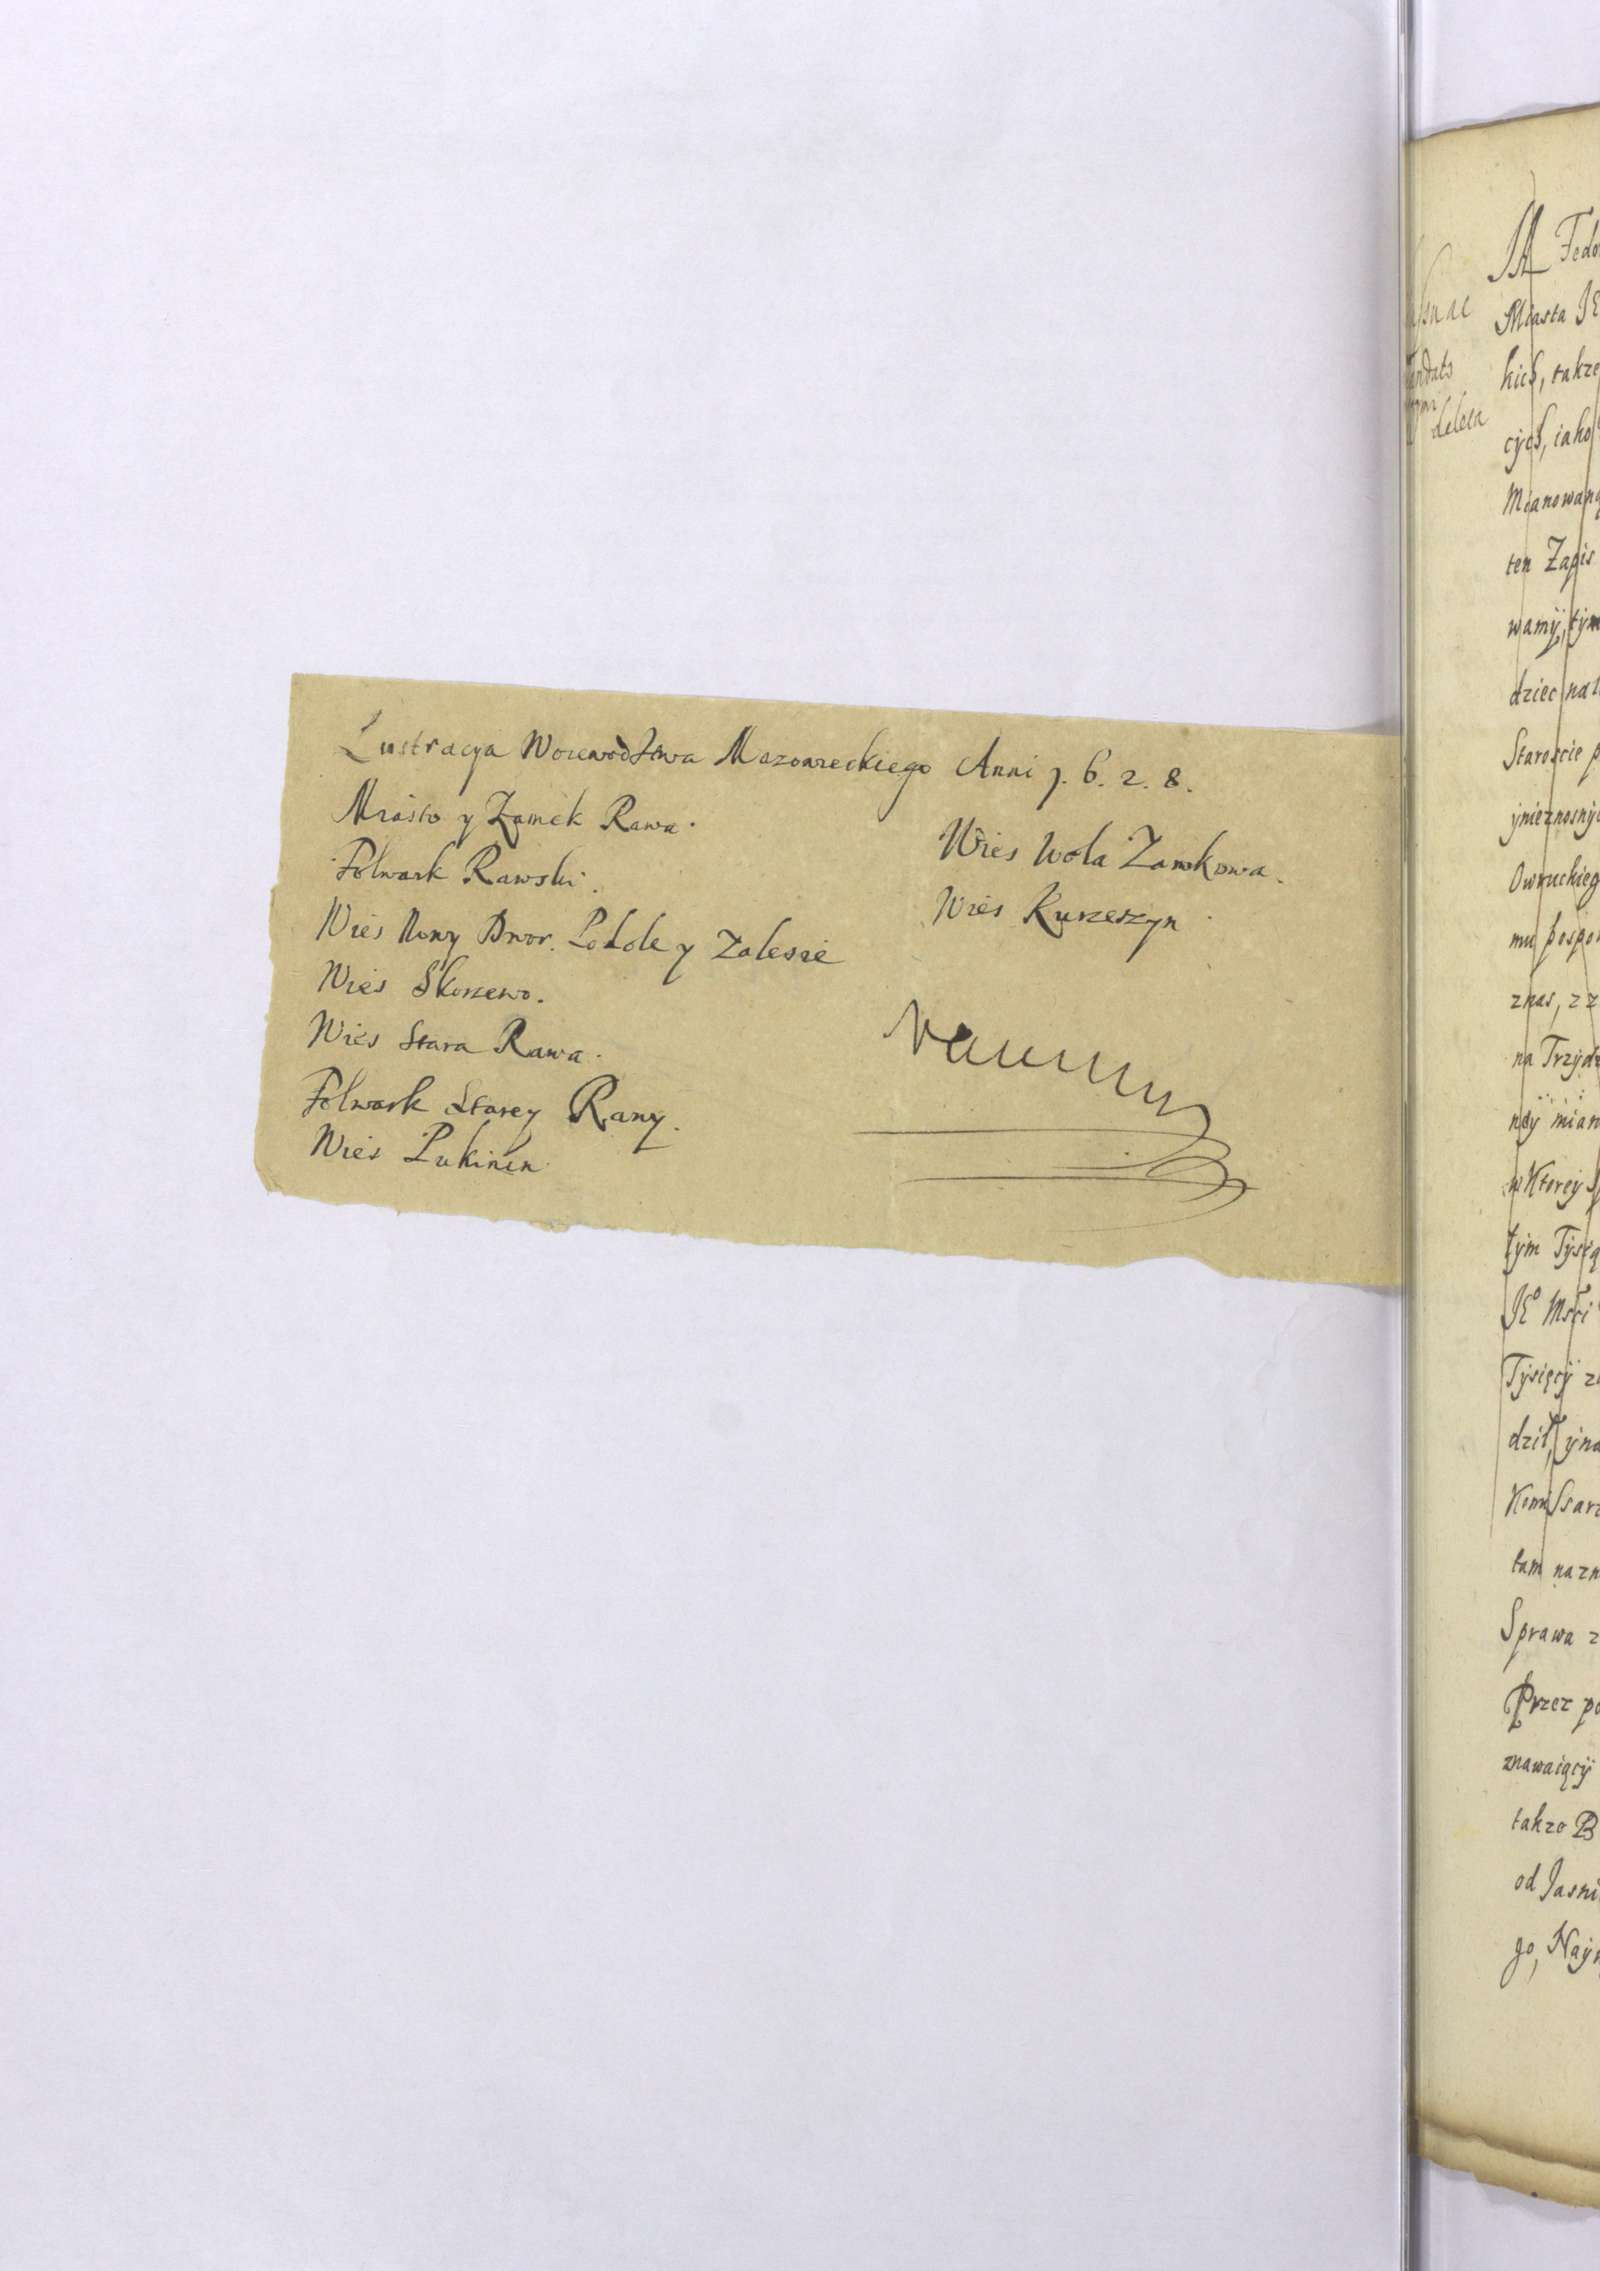 Lustracya Woiewodztwa Mazowieckiego Anni 1. 6. 2. 8.
Miasto y Zamek Rawa.
Folwark Rawski.
Wies Nowy Dwor. Podole y Zalesie
Wies Skorzewo.
Wies Stara Rawa.
Folwark Starey Rawy.
Wies Lukinin
Wies Wola Zamkowa.
Wies Kurzeszyn
Fedo
Miasta JE
kich, takze
cych, iako
Mianowan
ten Zapis
wamy, tym
dziec nal
Staroscie p
ynieznosny
Owruckieg
mu pospo
znas, z z
na Trzydz
ndy mian
wKtorey
tym Tysią
JEº Msci
Tysięcy z
dzil, yna
Komissarz
tam nazn
Sprawa z
Przez po
znawaiący
takze B
od Jasni
go, Nay
delecn